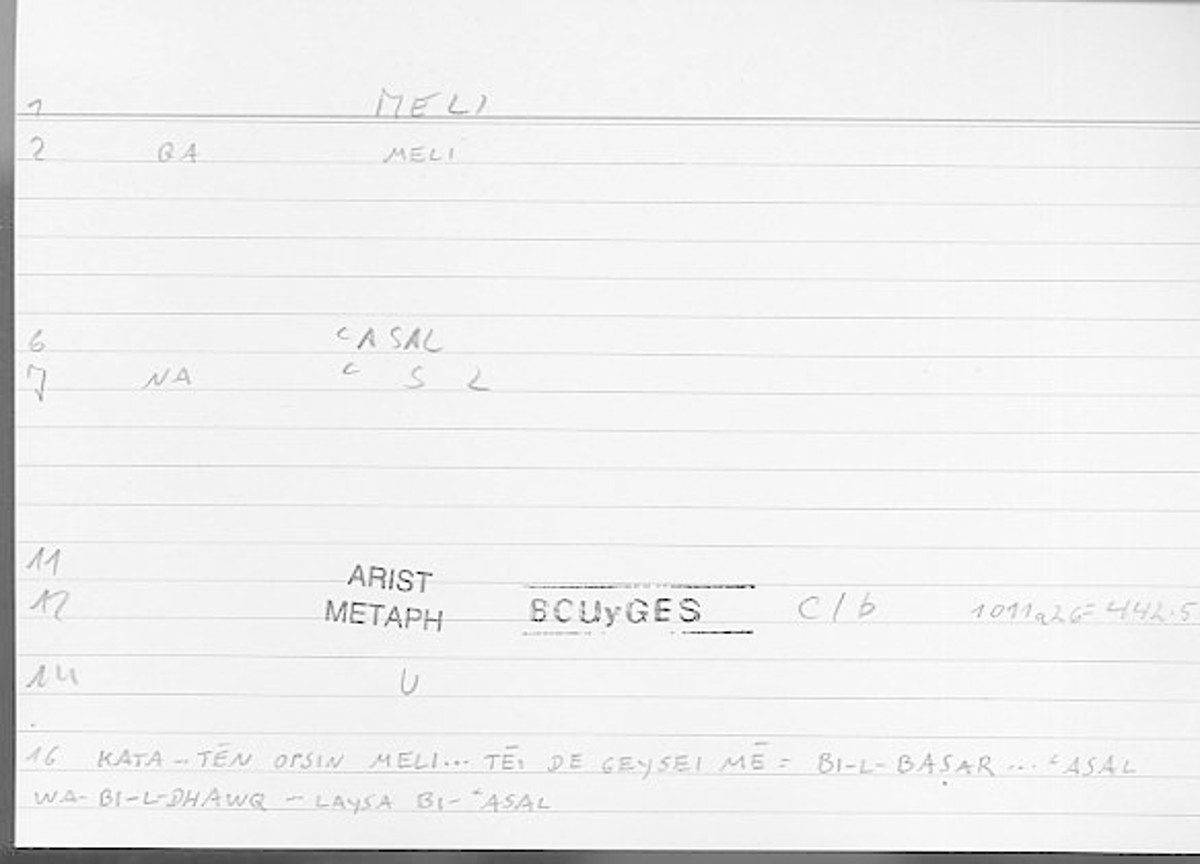 1 MELI
2 QA MELI
6 ʿASAL
7 NA ʿ S L
11
ARIST
12 METAPH BCUyGES C/b 1011a26=442.5
14 U
16 KATA-TĒN OPSIN MELI... TĒI DE GEYSEI MĒ = BI-L-BAṢAR ... ʿASAL
WA-BI-L-DHAWQ - LAYSA BI-ʿASAL